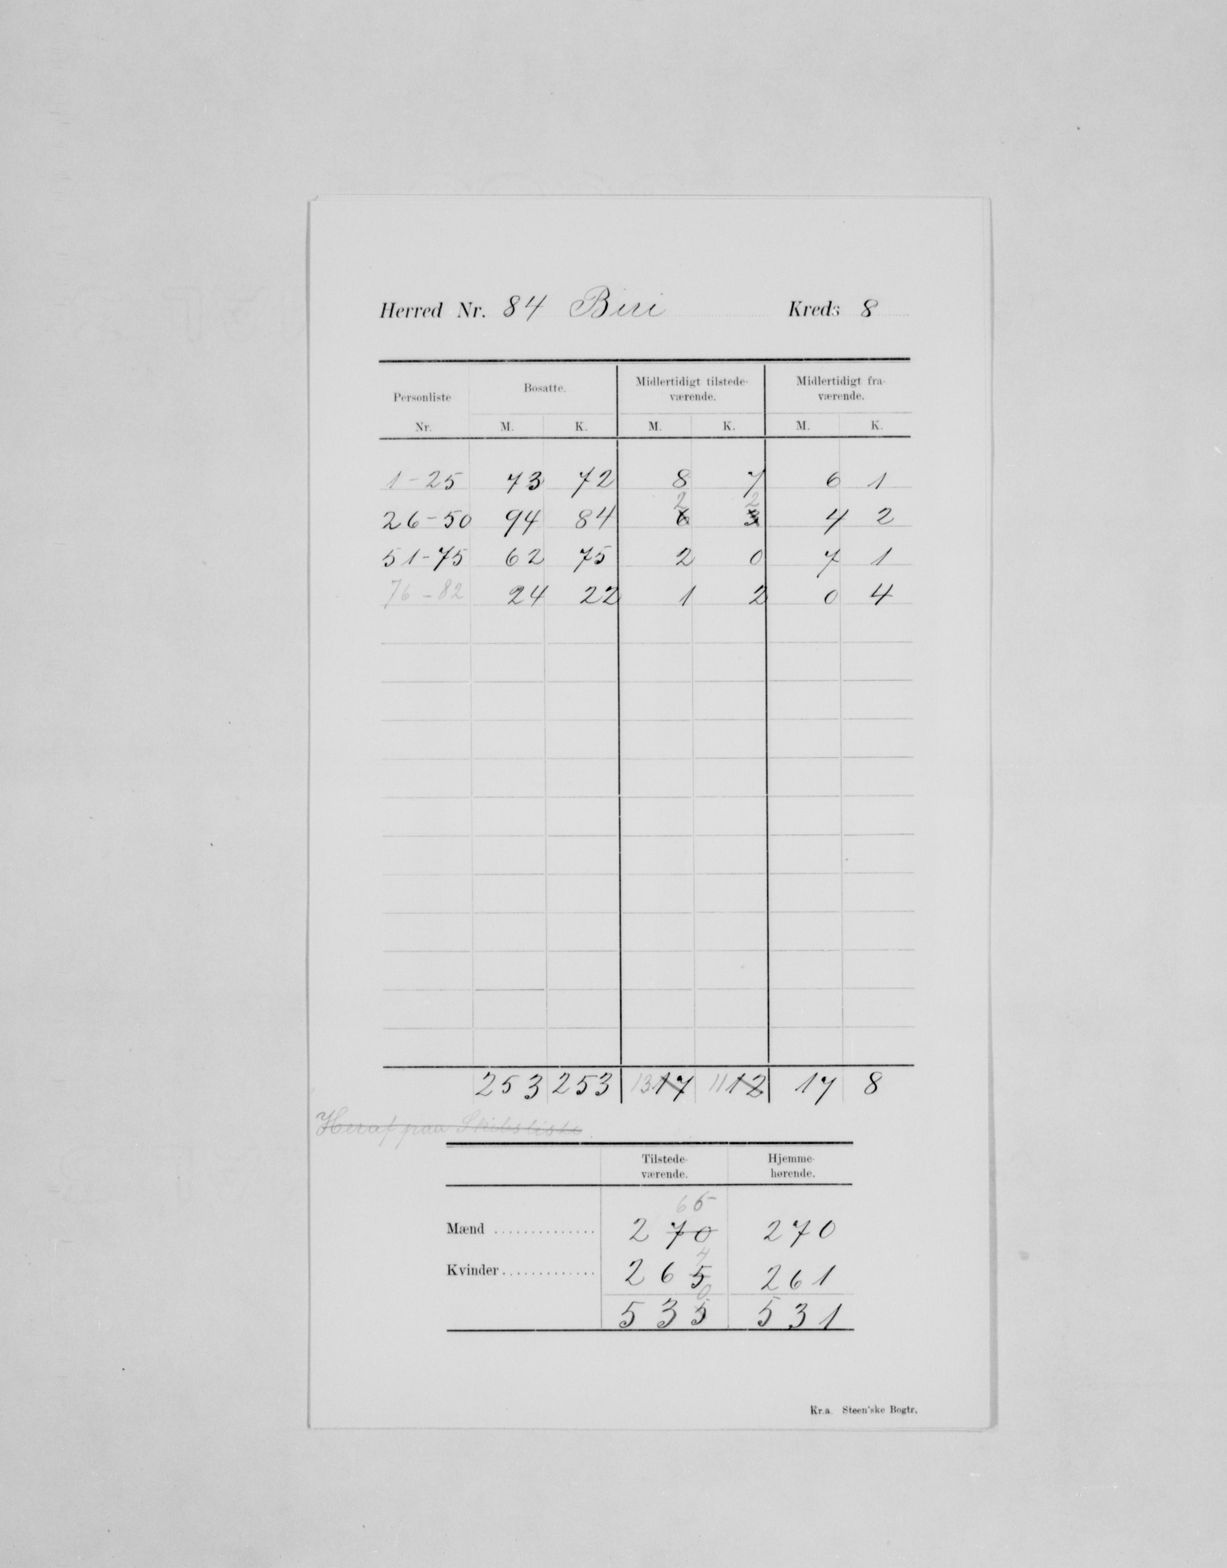 Herred Nr. 84 Biri Kreds 8
Personliste Bosatte. Midlertidigt tilstede- Midlertidigt fra-
værende. værende.
Nr. M. K. M. K. M. K.
1-25 73 72 8 7 6 1
2 2
26-50 94 84 6 3 4 2
51-75 62 75 2 0 7 1
76-82 24 22 1 2 0 4
253 253 13 17 11 12 17 8
Heraf paa Skibsliste
Tilstede- Hjemme-
værende. hørende.
66
Mænd .............. 270 270
4
Kvinder ............ 265 261
0
535 531
Kr.a. Steen'ske Bogtr.